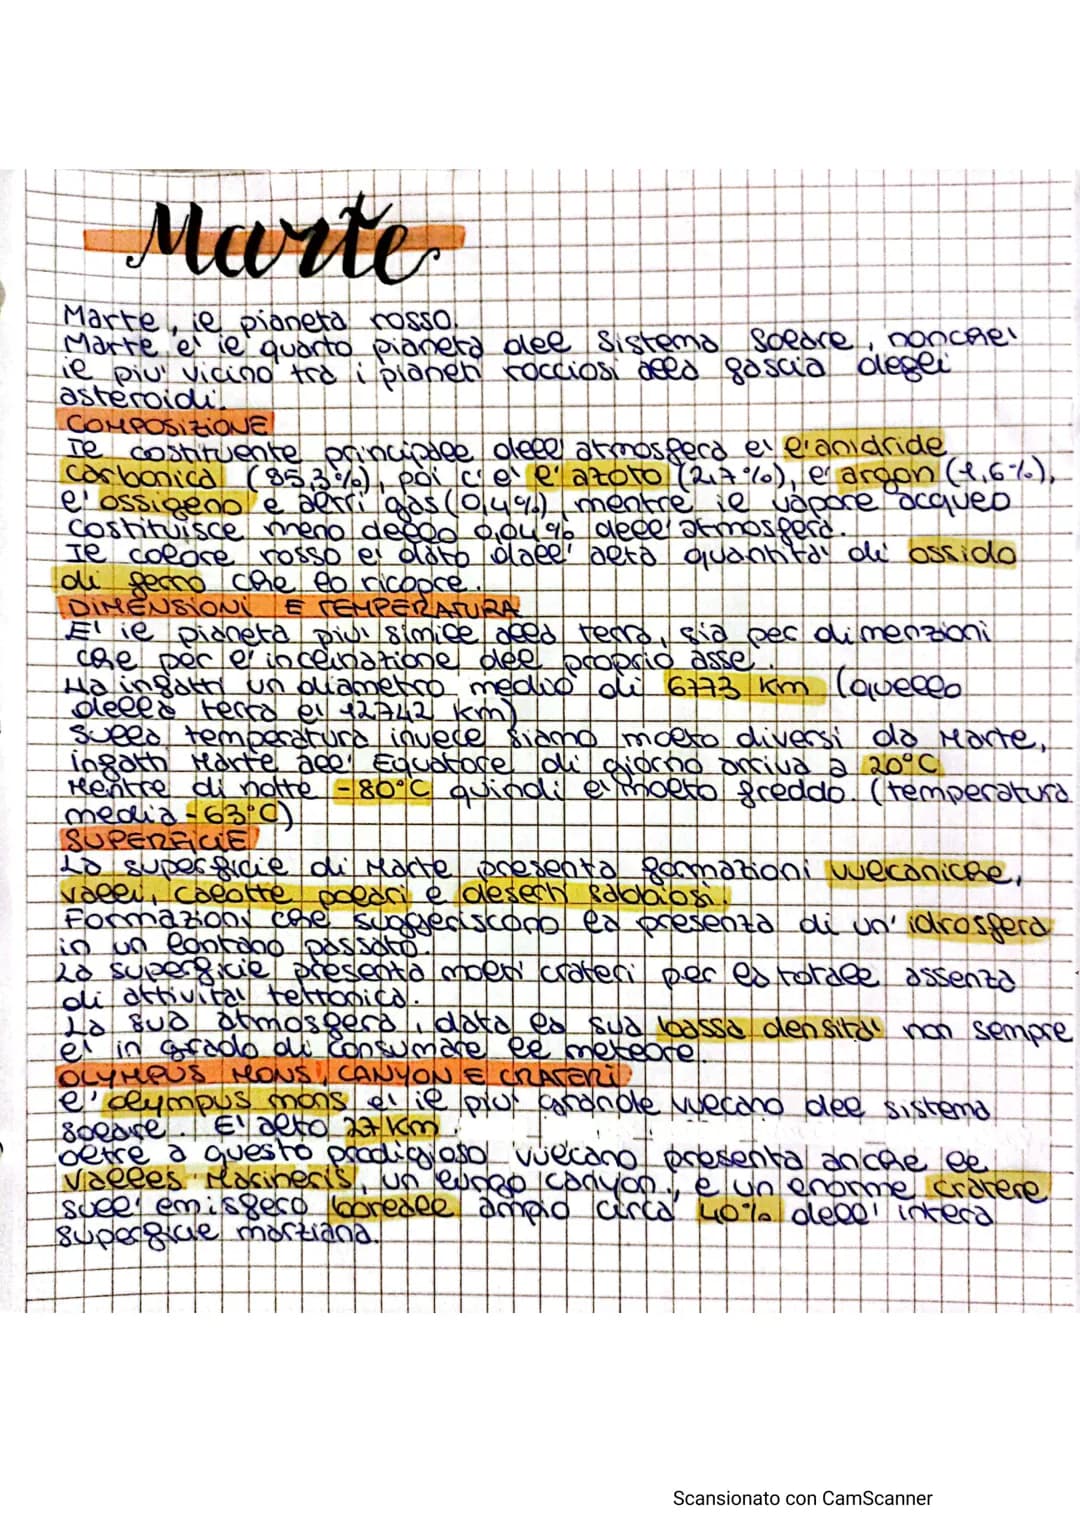 Marte
Marte, il pianeta rosso.
Marte e' il quarto pianeta del Sistema Solare, nonche'
il piu' vicino tra i pianeti rocciosi alla fascia degli
asteroidi.
COMPOSIZIONE
Il costituente principale dell' atmosfera e' l'anidride
carbonica (85,3%), poi c'e' l' azoto (2,7%), l' argon (1,6%),
l' ossigeno e altri gas (0,4%), mentre il vapore acqueo
costituisce meno dello 0,04% dell' atmosfera.
Il colore rosso e' dato dall' alta quantita' di ossido
di ferro che lo ricopre.
DIMENSIONI E TEMPERATURA
E' il pianeta piu' simile alla terra, sia per dimenzioni
che per l' inclinazione del proprio asse.
Ha infatti un diametro medio di 6773 Km (quello
della terra e' 12742 Km)
Sulla temperatura invece siamo molto diversi da Marte,
infatti Marte all' Equatore di giorno arriva a 20°C
Mentre di notte -80°C quindi e' molto freddo. (temperatura
media -63°C)
SUPERFICIE
La superficie di Marte presenta formazioni vulcaniche,
valli, calotte polari e deserti sabbiosi.
Formazioni che suggeriscono la presenza di un' idrosfera
in un lontano passato.
La superficie presenta molti crateri per la totale assenza
di attivita' tettonica.
La sua atmosfera, data la sua bassa densita' non sempre
e' in grado di consumare le meteore.
OLYMPUS MONS, CANYON E CRATERI
l' olympus mons e' il piu' grande vulcano del sistema
solare. E' alto 27 Km.
Oltre a questo prodigioso vulcano presenta anche le
Valles Marineris, un lungo canyon, e un enorme cratere
sull' emisfero boreale ampio circa 40% dell' intera
superficie marziana.
Scansionato con CamScanner